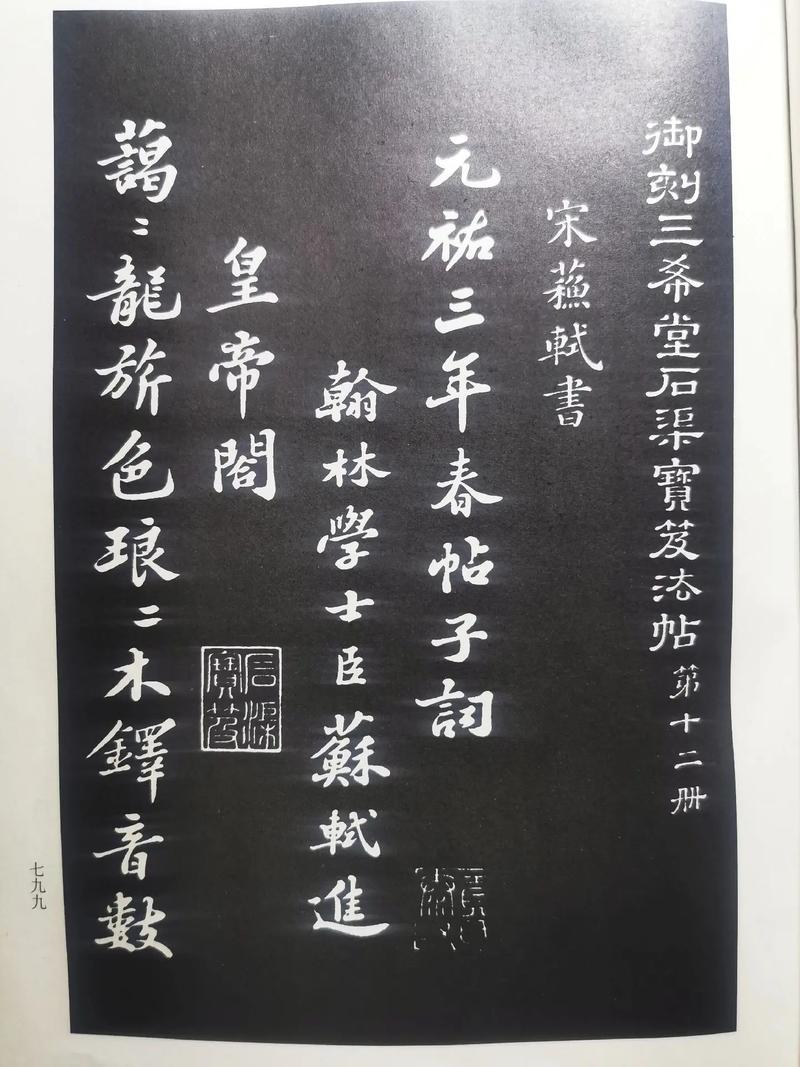 御刻三希堂石渠寶笈法帖 第十二册
宋蘓軾書
元祐三年春帖子詞
翰林學士臣蘇軾進
皇帝閣
石渠寶笈
藹〻龍旂色琅〻木鐸音數
七九九